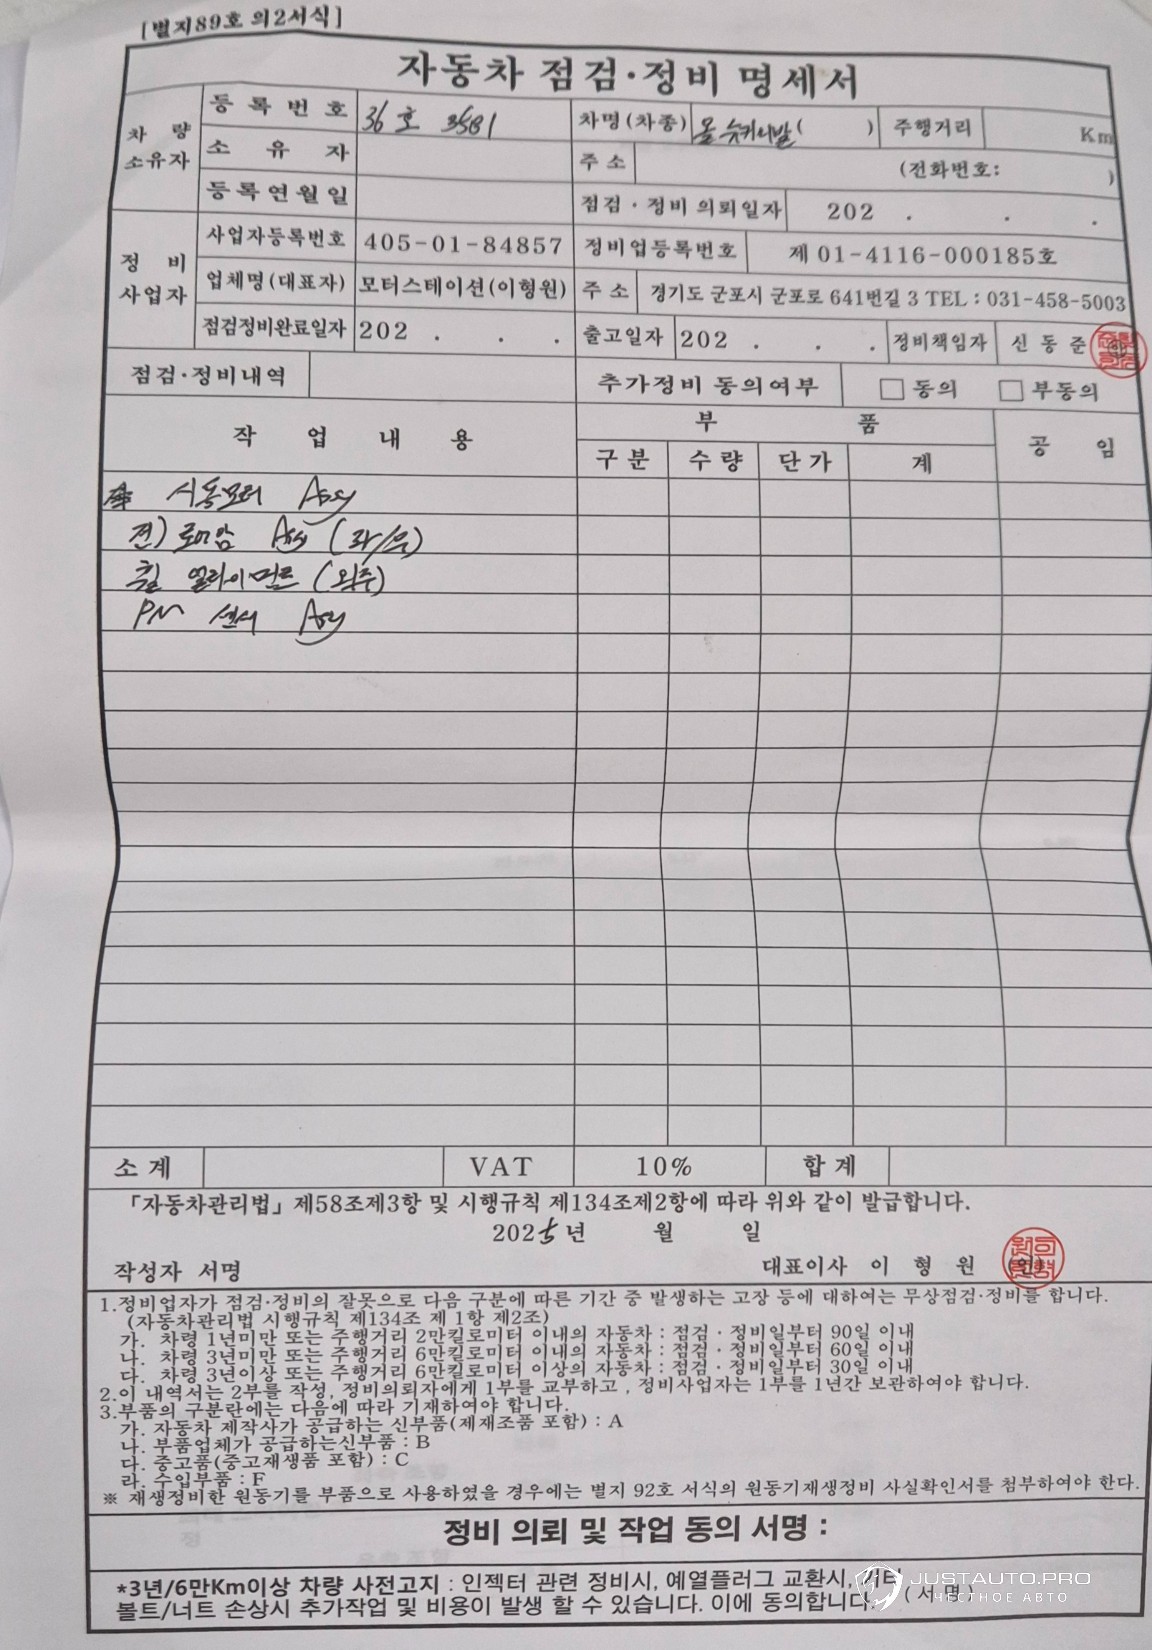 [별지89호 의2서식]
자동차 점검·정비 명세서
차 량 소유자
등 록 번 호 36호 3581 차명(차종) 올뉴카니발( ) 주행거리 Km
소 유 자 주 소 (전화번호: )
등록연월일 점검·정비 의뢰일자 202 . . .
정 비 사업자
사업자등록번호 405-01-84857 정비업등록번호 제 01-4116-000185호
업체명(대표자) 모터스테이션(이형원) 주 소 경기도 군포시 군포로 641번길 3 TEL : 031-458-5003
점검정비완료일자 202 . . . 출고일자 202 . . . 정비책임자 신 동 준
점검·정비내역 추가정비 동의여부 □ 동의 □ 부동의
작 업 내 용 부 품 공 임
구 분 수 량 단 가 계
시동모터 Assy
전) 로어암 Assy (좌/우)
휠 얼라이먼트 (외주)
PM 센서 Assy
소 계 VAT 10% 합 계
「자동차관리법」제58조제3항 및 시행규칙 제134조제2항에 따라 위와 같이 발급합니다.
2025년 월 일
작성자 서명 대표이사 이 형 원 (인)
1.정비업자가 점검·정비의 잘못으로 다음 구분에 따른 기간 중 발생하는 고장 등에 대하여는 무상점검·정비를 합니다.
(자동차관리법 시행규칙 제134조 제 1항 제2조)
가. 차령 1년미만 또는 주행거리 2만킬로미터 이내의 자동차 : 점검 · 정비일부터 90일 이내
나. 차령 3년미만 또는 주행거리 6만킬로미터 이내의 자동차 : 점검 · 정비일부터 60일 이내
다. 차령 3년이상 또는 주행거리 6만킬로미터 이상의 자동차 : 점검 · 정비일부터 30일 이내
2.이 내역서는 2부를 작성, 정비의뢰자에게 1부를 교부하고 , 정비사업자는 1부를 1년간 보관하여야 합니다.
3.부품의 구분란에는 다음에 따라 기재하여야 합니다.
가. 자동차 제작사가 공급하는 신부품(제재조품 포함) : A
나. 부품업체가 공급하는신부품 : B
다. 중고품(중고재생품 포함) : C
라. 수입부품 : F
※ 재생정비한 원동기를 부품으로 사용하였을 경우에는 별지 92호 서식의 원동기재생정비 사실확인서를 첨부하여야 한다.
정비 의뢰 및 작업 동의 서명 :
*3년/6만Km이상 차량 사전고지 : 인젝터 관련 정비시, 예열플러그 교환시,
볼트/너트 손상시 추가작업 및 비용이 발생 할 수 있습니다. 이에 동의합니다. (서명)
JUSTAUTO.PRO
ЧЕСТНОЕ АВТО